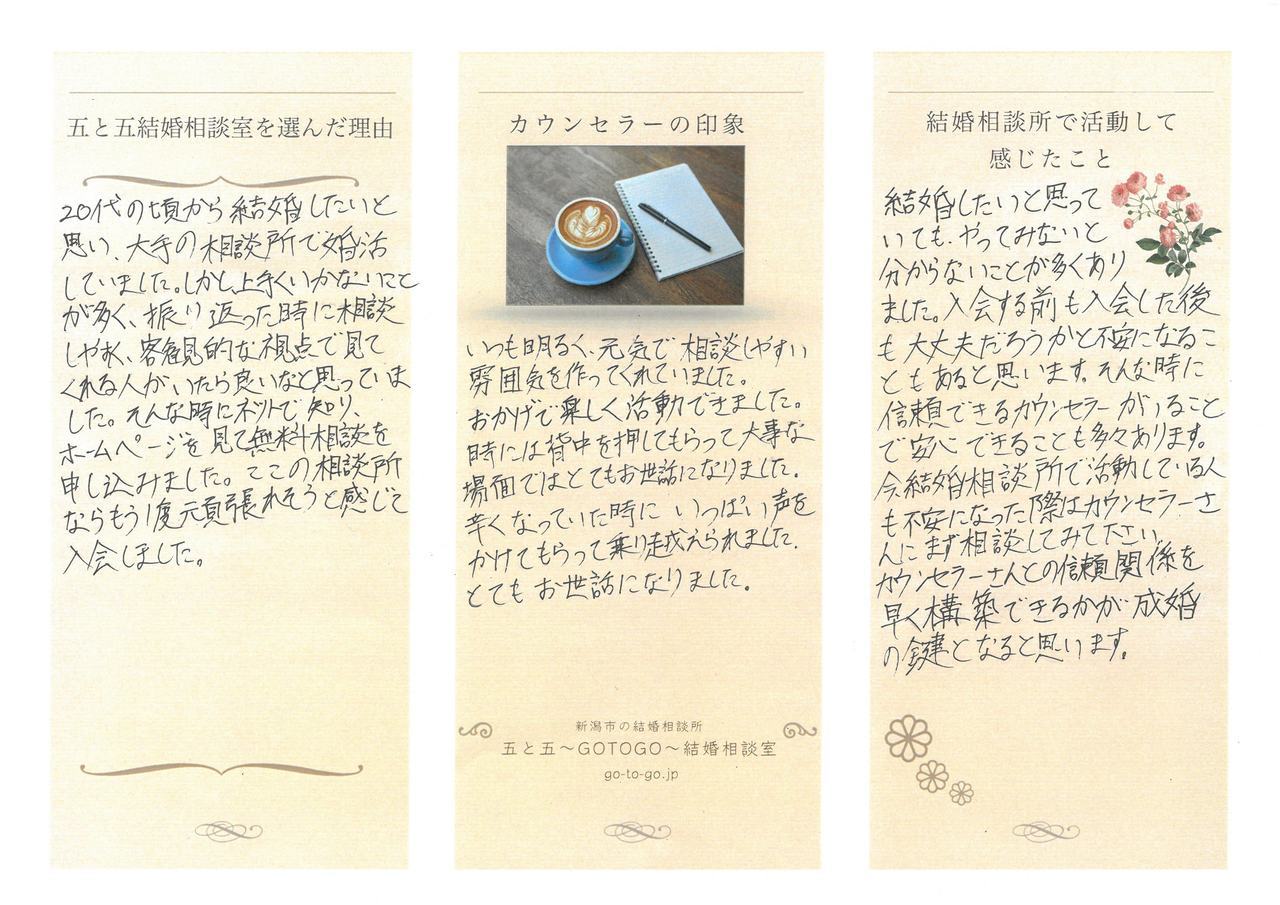 五と五結婚相談室を選んだ理由
20代の頃から結婚したいと
思い、大手の相談所で婚活
していました。しかし上手くいかないこと
が多く、振り返った時に相談
しやすく、客観的な視点で見て
くれる人がいたら良いなと思っていま
した。そんな時にネットで知り、
ホームページを見て無料相談を
申し込みました。ここの相談所
ならもう1度頑張れそうと感じて
入会しました。
カウンセラーの印象
いつも明るく、元気で相談しやすい
雰囲気を作ってくれていました。
おかげで楽しく活動できました。
時には背中を押してもらって大事な
場面ではとてもお世話になりました。
辛くなっていた時にいっぱい声を
かけてもらって乗り越えられました。
とてもお世話になりました。
新潟市の結婚相談所
五と五〜GOTOGO〜結婚相談室
go-to-go.jp
結婚相談所で活動して
感じたこと
結婚したいと思って
いても、やってみないと
分からないことが多くあり
ました。入会する前も入会した後
も大丈夫だろうかと不安になるこ
ともあると思います。そんな時に
信頼できるカウンセラーがいること
で安心できることも多々あります。
今結婚相談所で活動している人
も不安になった際はカウンセラーさ
んにまず相談してみて下さい。
カウンセラーさんとの信頼関係を
早く構築できるかが成婚
の鍵となると思います。